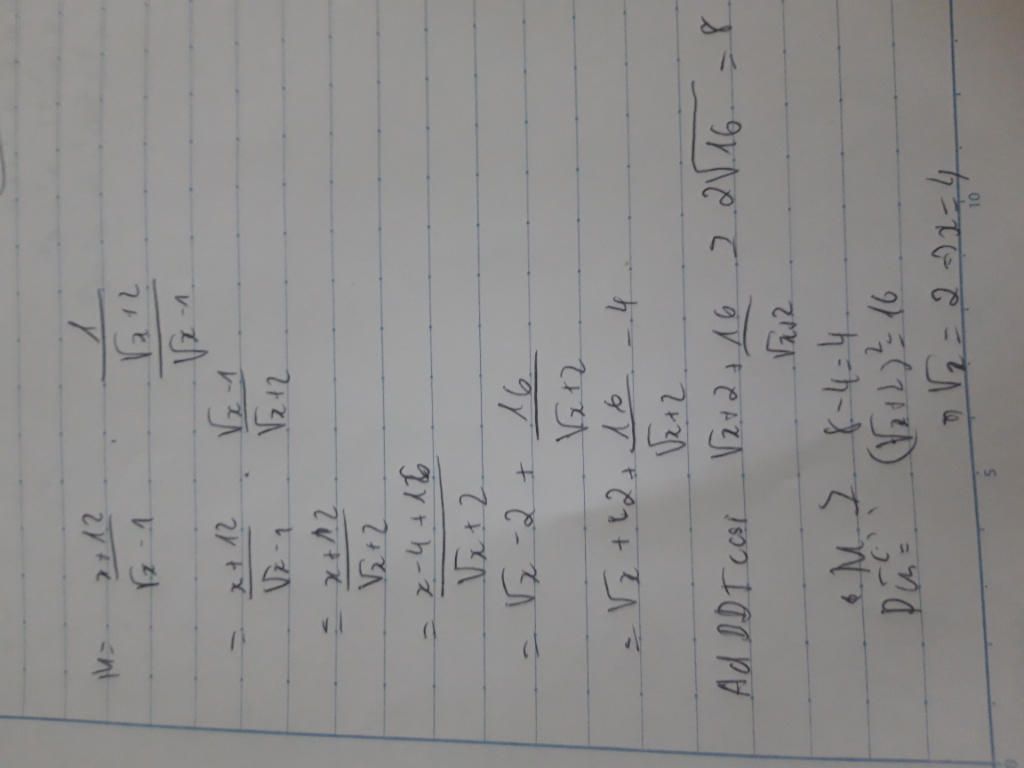 M = \frac{x+12}{\sqrt{x}-1} . \frac{1}{\frac{\sqrt{x}+2}{\sqrt{x}-1}}
= \frac{x+12}{\sqrt{x}-1} . \frac{\sqrt{x}-1}{\sqrt{x}+2}
= \frac{x+12}{\sqrt{x}+2}
= \frac{x-4+16}{\sqrt{x}+2}
= \sqrt{x}-2 + \frac{16}{\sqrt{x}+2}
= \sqrt{x}+2+\frac{16}{\sqrt{x}+2} - 4
Ad DDT cosi \sqrt{x}+2+\frac{16}{\sqrt{x}+2} ≥ 2\sqrt{16} = 8
M ≥ 8-4=4
Dấu "=" (\sqrt{x}+2)^2=16
⇒ \sqrt{x}=2 ⇒ x=4
5
10